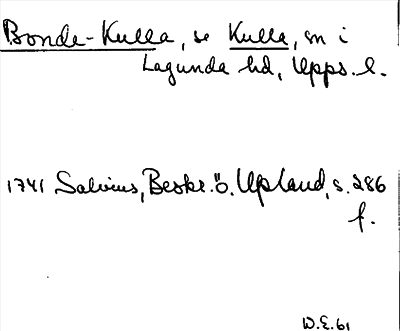 Bonde-Kulla, se Kulla, sn i
Lagunda hd, Upps. l.
1741 Salvius, Beskr. ö. Upland, s. 286
f.
W.E. 61